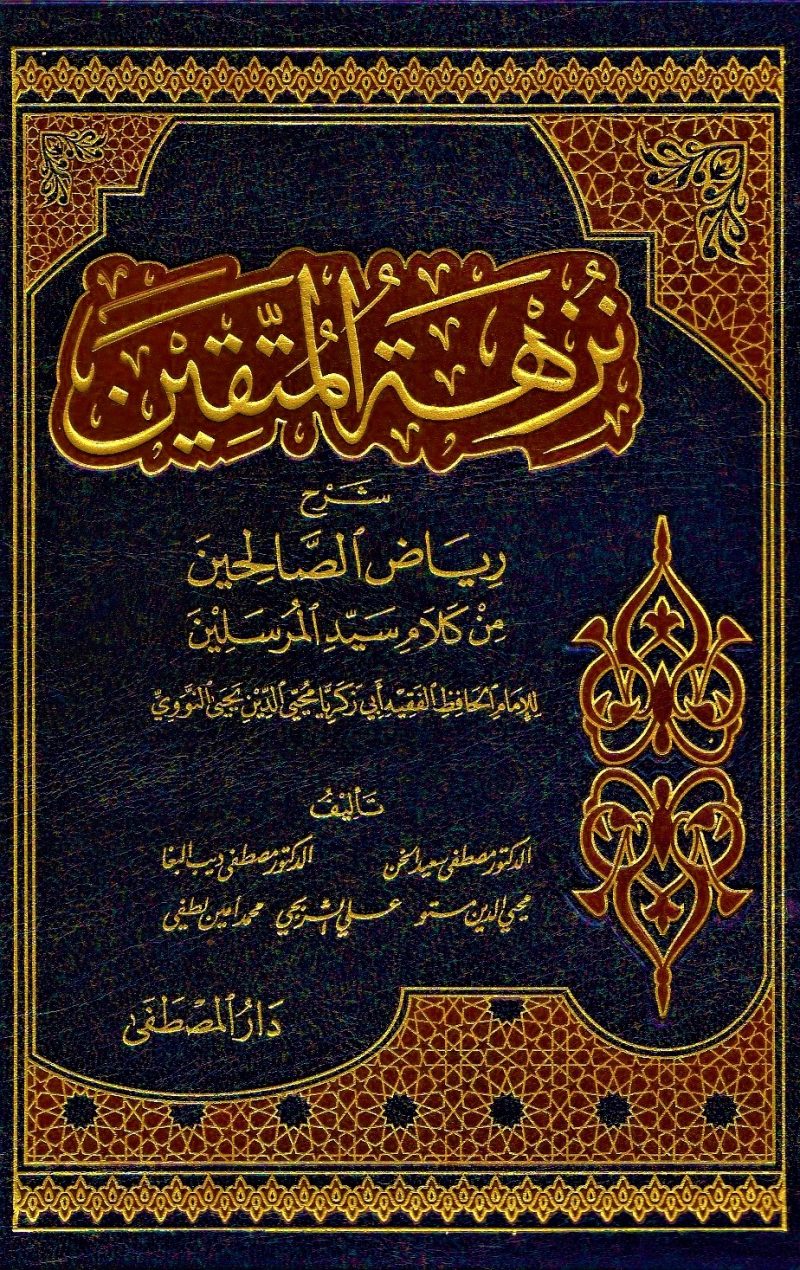 نُزْهَةُ المُتَّقِيْنَ
شَرْح
رِيَاض الصَّالِحِينَ
مِنْ كَلَامِ سَيِّدِ المُرسَلِيْنَ
لِلإِمَامِ الحَافِظِ الفَقِيْهِ أَبِي زَكَرِيَّا مُحْيِي الدِّيْنِ يَحْيَى النَّوَوِيِّ
تَأْلِيْفُ
الدكتور مصطفى سعيد الخن الدكتور مصطفى ديب البغا
محيي الدين مستو علي الشربجي محمد أمين لطفي
دَارُ المُصْطَفَى